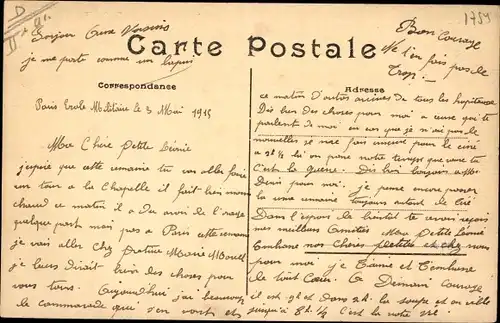 Bonjour aux Voisins
je me porte comme un lapin
1754
Bon Courage
Ne t'en fais pas de
Trop.
Carte Postale
Correspondance
Adresse
Paris Ecole Militaire le 3 Mai 1915
Ma Chère Petite
que cette semaine tu vas aller faire
un tour a la Chapelle il fait bien moins
chaud ce matin il a du avoir de l'orage
quelque part mais pas a Paris cette semaine
je vais aller chez
je leurs dirait bien des choses pour
vous tous. Aujourd'hui j'ai beaucoup
de commarade qui s'en vont
ce matin d'autres arrivés de tous les hopitaux
Dis bien des choses pour moi a ceux qui te
parlent de moi en cas que je n'ai pas de
nouvelles ne me fais encore pour le ciné
a 2h ½ on passe notre temps que veux tu
C'est la Guerre. Dis bien bonjour a Mr
Denis pour moi. je pense encore passer
la semaine toujours autant de
Dans l'espoir de bientot te revoir reçois
mes meilleurs Amitiés Ma Petite
Embrasse nos Chères petites et chez nous
pour moi je t'aime et t'embrasse
de tout Cœur. A Demain courage
il est 9h et dans 2h la soupe et on
jusqu'a 8h ½ c'est la notre vie